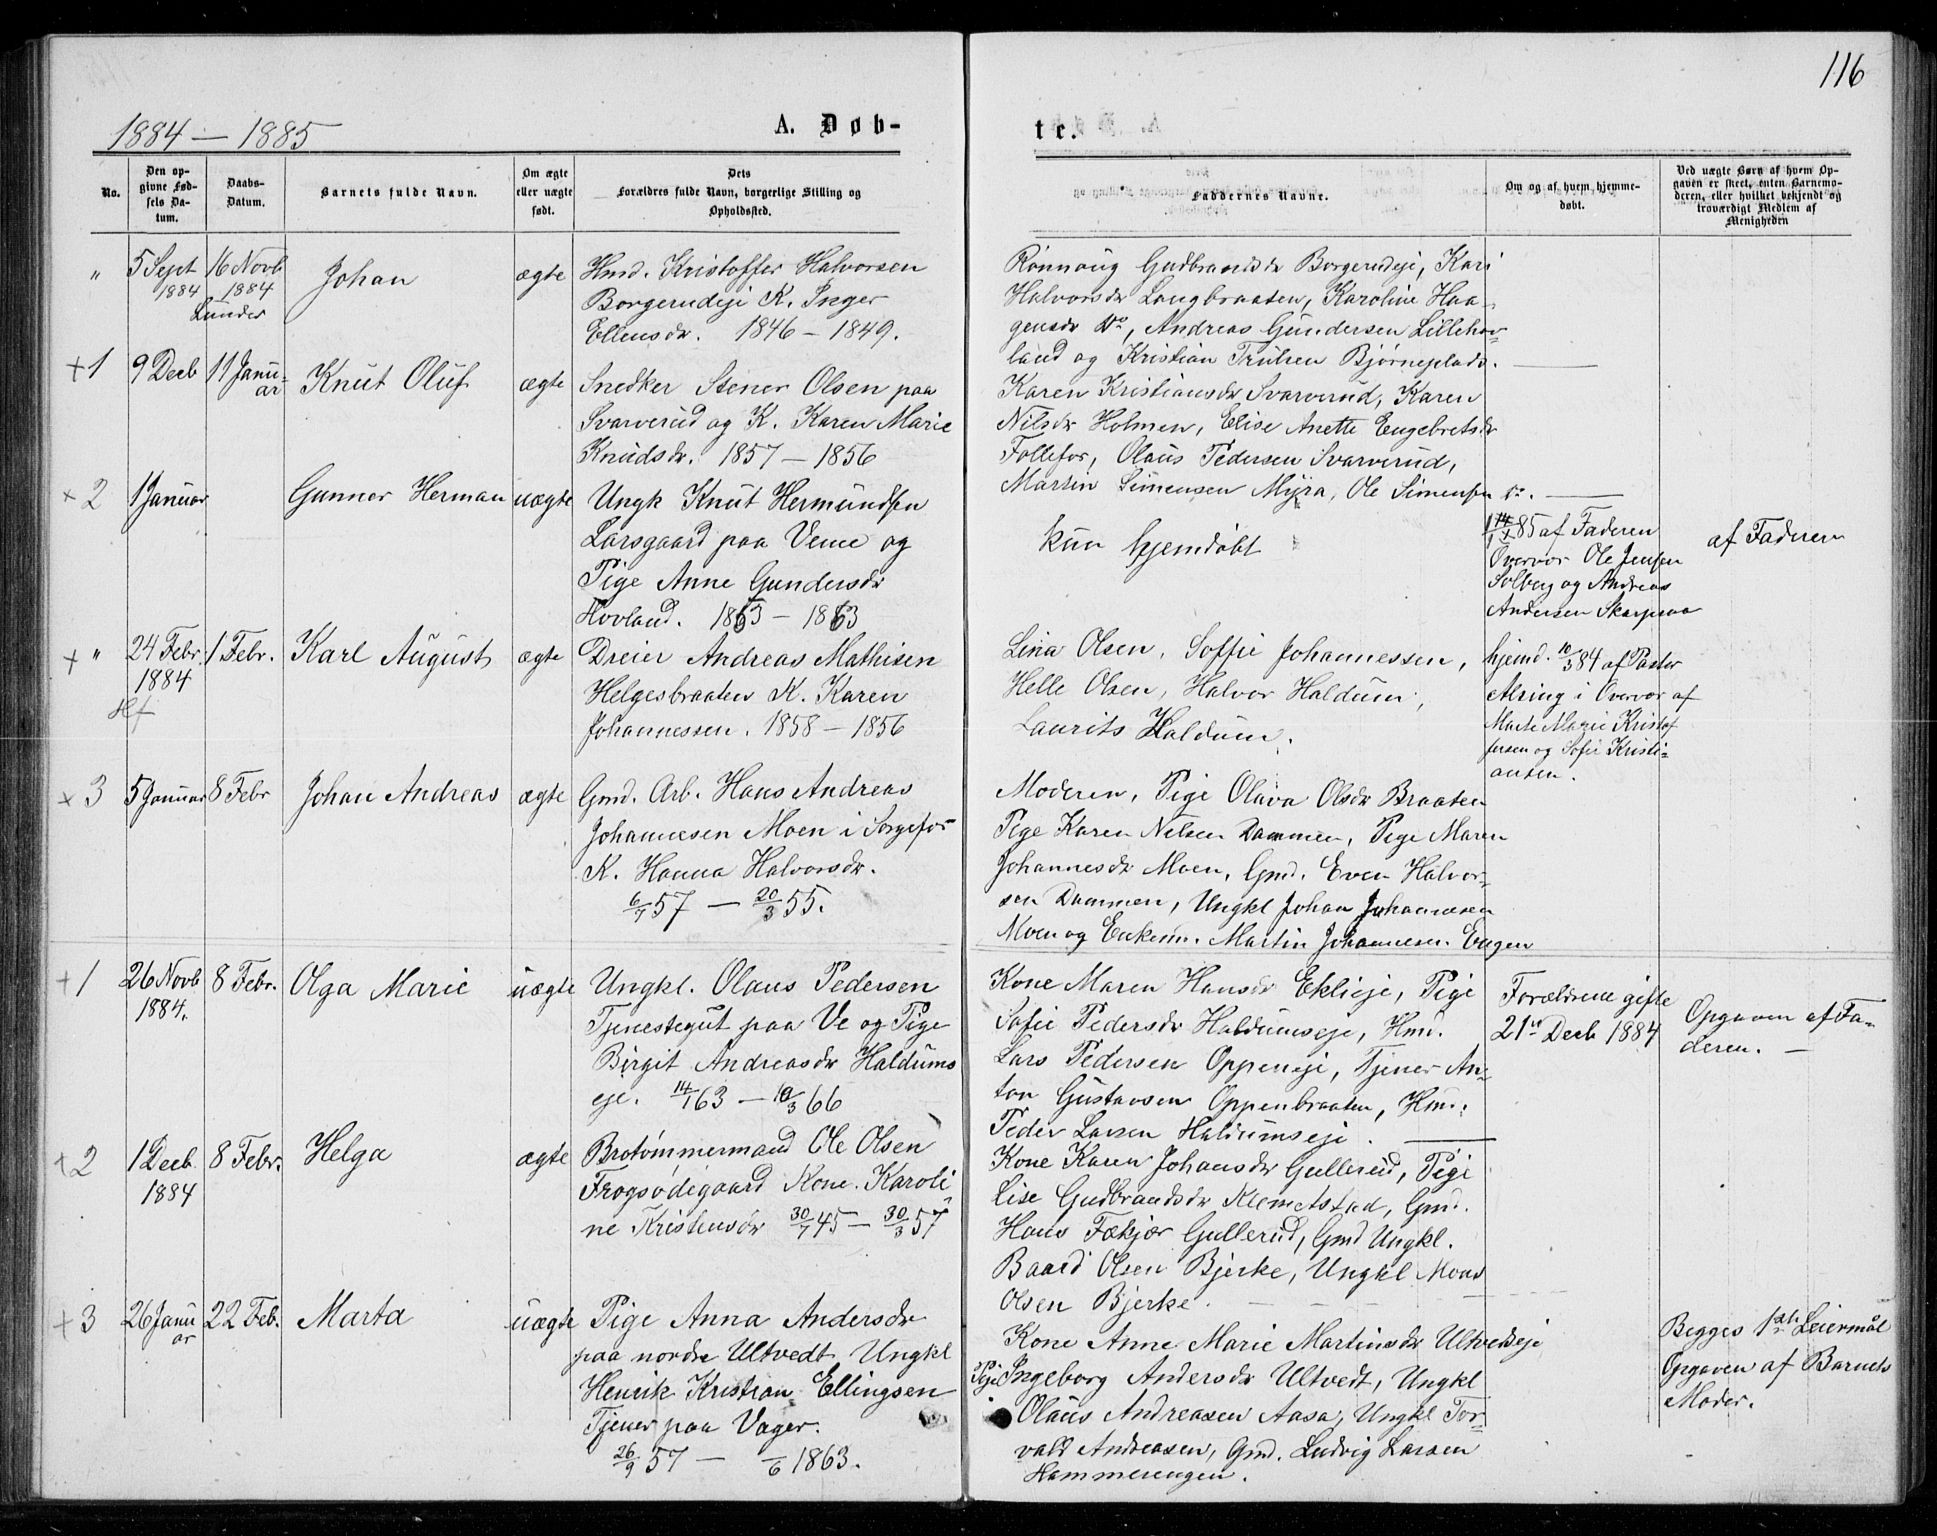 116
1884 — 1885
A. Døb-
te.
No.
Den op-
givne Fød-
sels Da-
tum.
Daabs-
Datum.
Barnets fulde Navn.
Om ægte
eller uægte
født.
Dets
Forældres fulde Navn, borgerlige Stilling og
Opholdssted.
Faddernes Navne.
Om og af hvem hjemme-
døbt.
Ved uægte Børn af hvem Op-
gaven er skeet, enten Barnemo-
deren, eller hvilket bekjendt og
troværdigt Medlem af
Menigheden
" 5 Sept 1884
16 Novb 1884
Lunder
Johan
ægte
Hmd. Kristoffer Halvorsen
Borgerudeje K. Inger
Ellensdr. 1846 – 1849.
Rønnaug Gudbrandsdr Borgerudeje, Kari
Halvorsdr Langbraaten, Karoline Haa-
gensdr Do, Andreas Gundersen Lillehov-
land og Kristian Trulsen Bjørneplads.
+1
9 Decb
11 Janu-
ar
Knut Oluf
ægte
Snedker Stener Olsen paa
Svarverud og K. Karen Marie
Knudsdr. 1857 – 1856
Karen Kristiansdr Svarverud, Karen
Nilsdr Holmen, Elise Anette Engebretsdr
Follefos, Olaus Pedersen Svarverud,
Martin Simensen Myra, Ole Simensen Do.
+2
1 Januar
Gunner Herman
uægte
Ungk Knut Hermundsen
Larsgaard paa Veme og
Pige Anne Gundersdr
Hovland. 1863 – 1863
kun hjemdøbt
14/1 85 af Faderen
Overvær Ole Jensen
Solberg og Andreas
Andersen Skarpsno
af Faderen
+ "
24 Febr.
1884
1 Febr.
Karl August
ægte
Dreier Andreas Mathisen
Helgesbraaten K. Karen
Johannessen. 1858 – 1856
Lina Olsen, Soffie Johannessen,
Helle Olsen, Halvor Haldum,
Laurits Haldum.
hjemd. 10/3 84 af Pastor
Alsing i Overvær af
Marte Marie Kristof
fersen og Sofie Kristi-
ansen.
+3
5 Januar
8 Febr
Johan Andreas
ægte
Gmd. Arb. Hans Andreas
Johannesen Moen i Sørgefos
K. Hanna Halvorsdr.
6/7 57 — 20/3 55.
Moderen, Pige Olava Olsdr Braaten
Pige Karen Nilsen Dammen, Pige Maren
Johannesdr Moen, Gmd. Even Halvor-
sen Dammen, Ungkl Johan Johannesen
Moen og Enkem. Martin Johannesen Engen
+1
26 Novb
1884.
8 Febr.
Olga Marie
uægte
Ungkl. Olaus Pedersen
Tjenestegut paa Ve og Pige
Birgit Andreasdr Haldums
eje. 14/1 63 – 10/3 66
Kone Maren Hansdr Eklieje, Pige
Sofie Pedersdr Haldumseje, Hmd.
Lars Pedersen Oppeneje, Tjener An-
ton Gustavsen Oppenbraaten, Hmd.
Peder Larsen Haldumseje.
Forældrene gifte
21de Decb 1884
Opgaven af Fa-
deren. —
+2
1 Decb.
1884
8 Febr.
Helga
ægte
Brotømmermand Ole Olsen
Frogsødegaard Kone. Karoli
ne Kristensdr 30/7 45 – 30/3 57
Kone Karen Johansdr Gullerud, Pige
Lise Gudbrandsdr Klemetstad, Gmd.
Hans Fækjær Gullerud, Gmd Ungkl.
Baard Olsen Bjerke, Ungkl Mons
Olsen Bjerke.
+3
26 Janu
ar
22 Feb.
Marta
uægte
Pige Anna Andersdr
paa nordre Ultvedt Ungkl
Henrik Kristian Ellingsen
Tjener paa Vager.
26/9 57 — /6 1863.
Kone Anne Marie Martinsdr Ultvedteje
Pige Ingeborg Andersdr Ultvedt, Ungkl
Olaus Andreasen Aasa, Ungkl Tor-
vald Andreasen, Gmd. Ludvig Larsen
Hammerengen.
Begges 1ste Leiermål
Opgaven af Barnets
Moder.